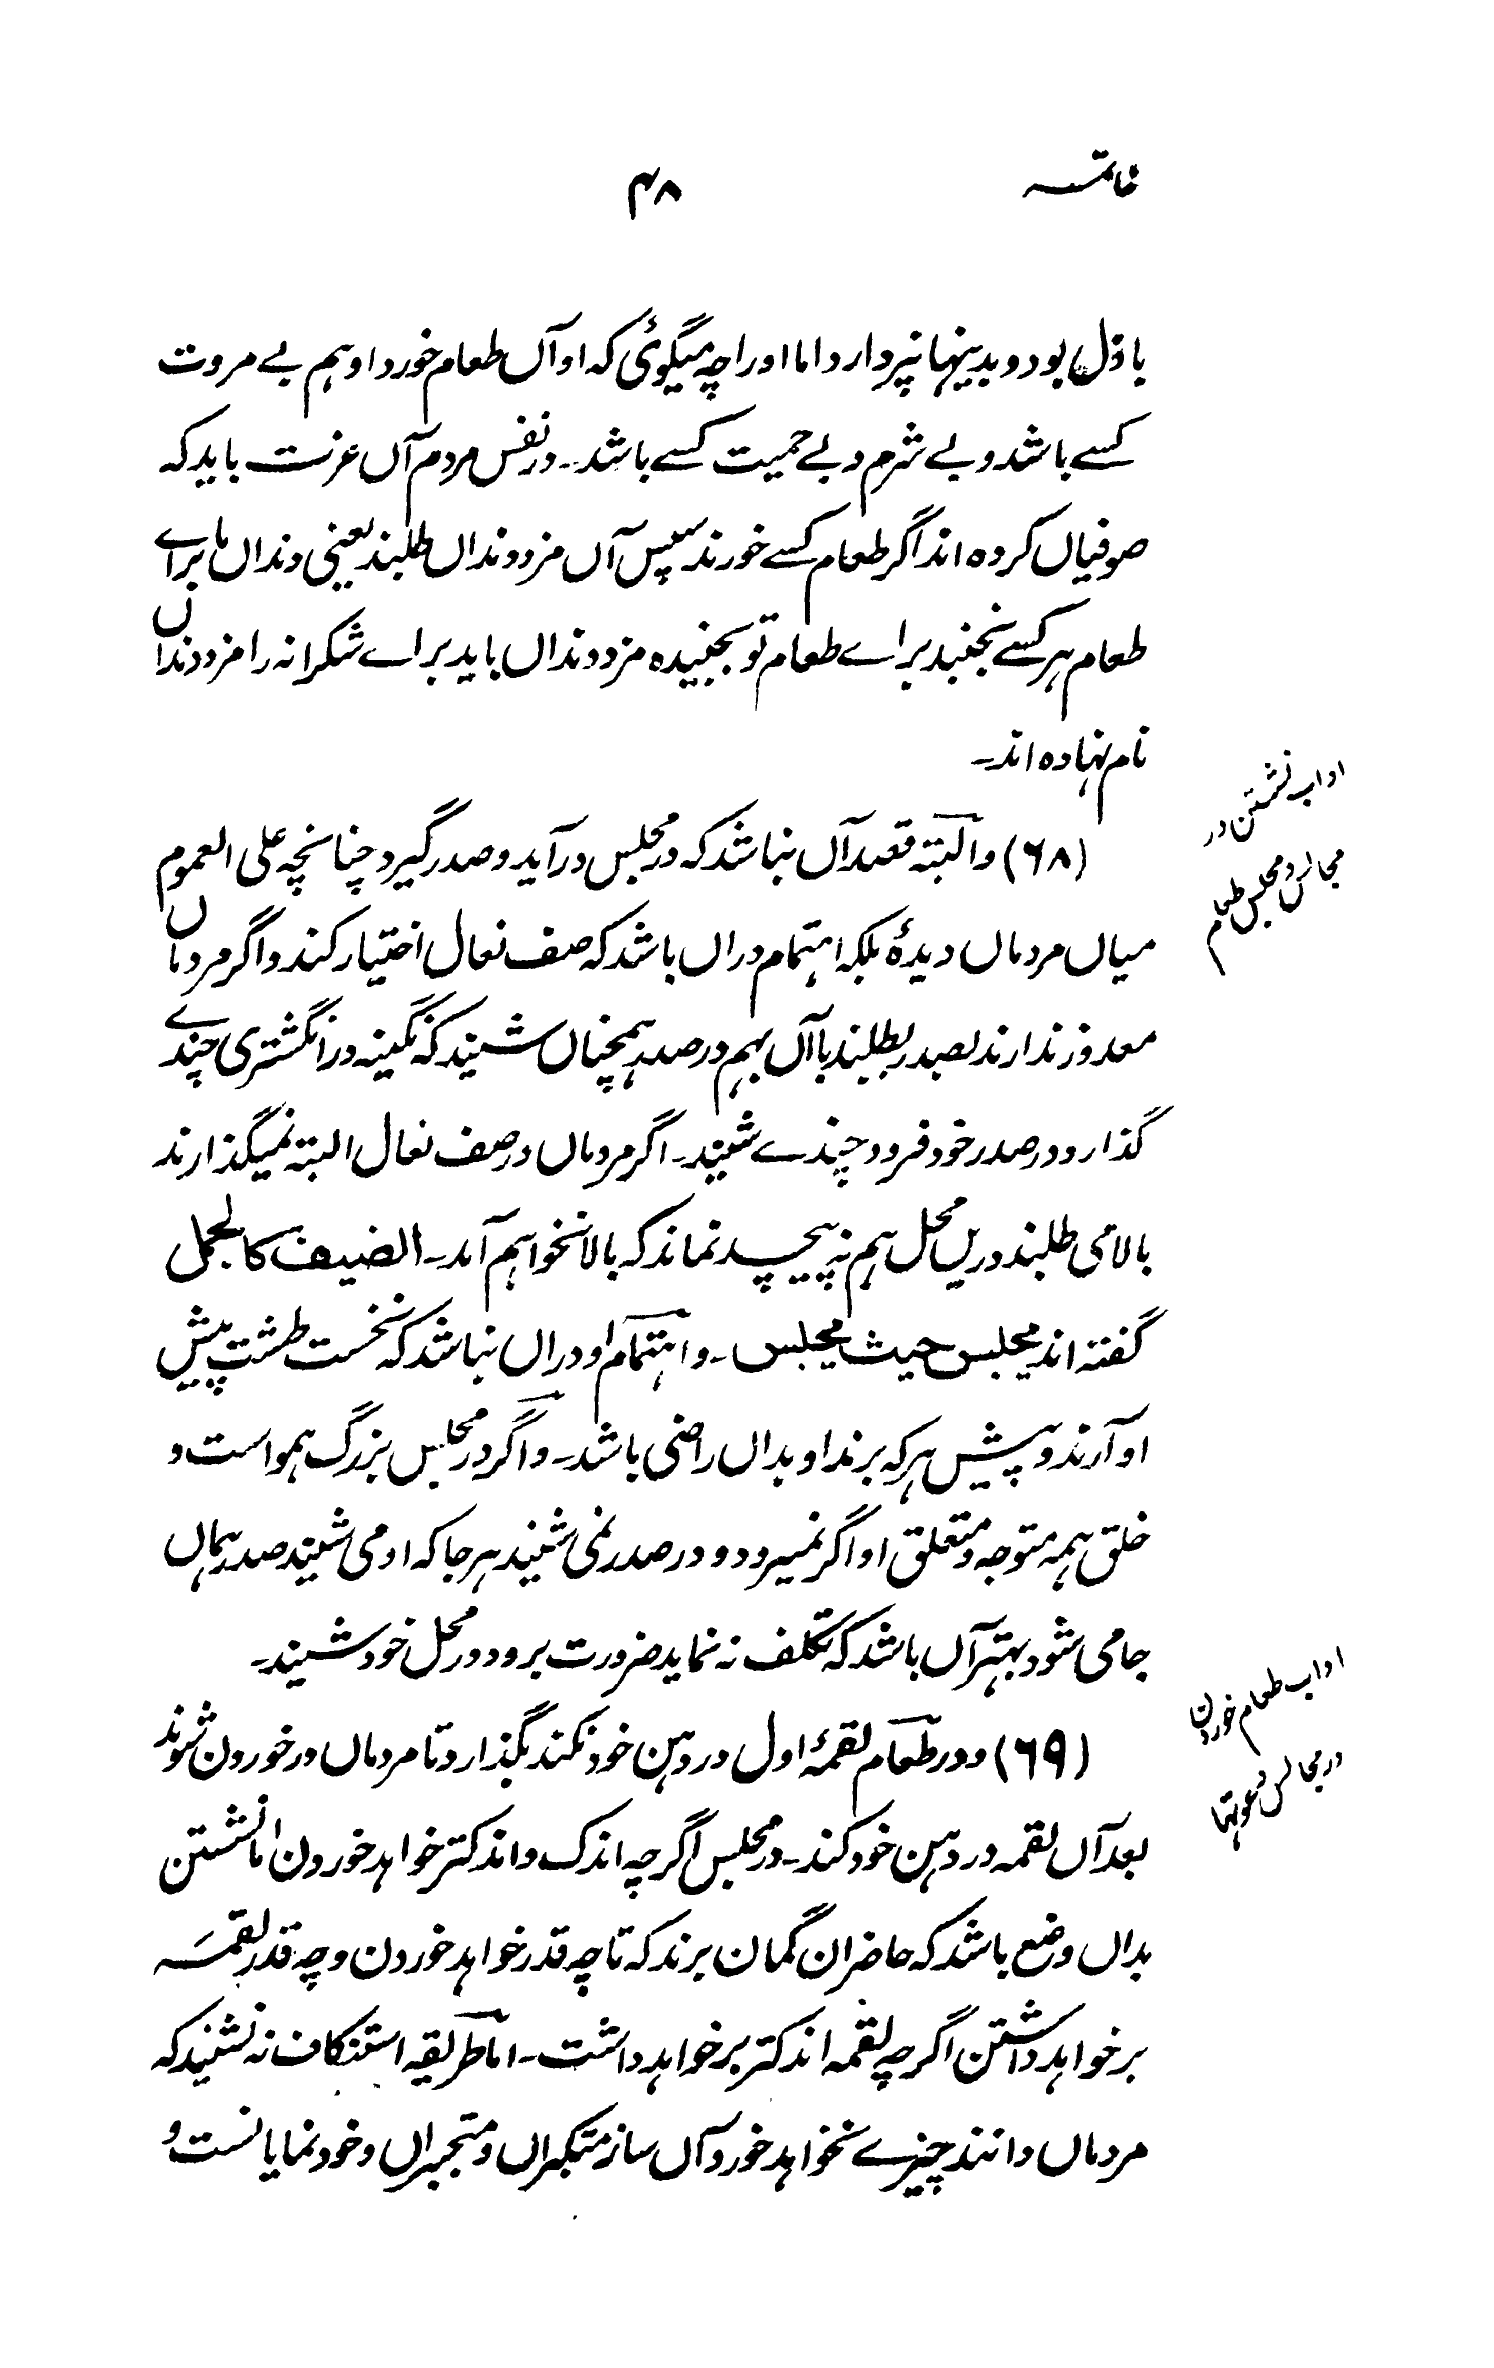 خاتمہ
۴۸
باذل بود و بدینہا نپردازد اما او را چہ میگوئی کہ او آں طعام خورد او ہم بے مروت
کسے باشد و بے شرم و بے حمیت کسے باشد۔ در نفس مردم آں عزت باید کہ
صوفیاں کردہ اند اگر طعام کسے خورند سپس آں مزد دنداں طلبند یعنی دنداں ما براے
طعام ہر کسے نجنبد براے طعام تو بجنبیدہ مزد دنداں باید براے شکرانہ را مزد دنداں
نام نہادہ اند۔
اداب نشستن در
مجالس و مجلس طعام
(۶۸) و البتہ قصد آں نباشد کہ در مجلس در آید و صدر گیرد چنانچہ علی العموم
میاں مردماں دیدۂ بلکہ اہتمام دراں باشد کہ صف نعال اختیار کند و اگر مردماں
معذور ندارند بصدر بطلبند با آں ہم در صدر ہمچناں نشیند کہ نگینہ در انگشتری چندے
گذارد و در صدر خود فرود چندے نشیند۔ اگر مردماں در صف نعال البتہ نمیگذارند
بالا می طلبند دریں محل ہم نہ پیچد نماند کہ بالا نخواہم آمد۔ الضیف کالجمل
گفتہ اند یجلس حیث یجلس۔ و اہتمام او دراں نباشد کہ نخست طشت پیش
او آرند و پیش ہر کہ برند او بداں راضی باشد۔ و اگر در مجلس بزرگ ہمو است و
خلق ہمہ متوجہ و متعلق او اگر نمیرود و در صدر نمی نشیند ہر جا کہ او می نشیند صدر ہماں
جا می شود بہتر آں باشد کہ تکلف نہ نماید ضرورت برود و در محل خود نشیند۔
اداب طعام خوردن
در مجالس دعوتہا
(۶۹) و در طعام لقمۂ اول در دہن خود نکند بگذارد تا مردماں در خوردن شوند
بعد آں لقمہ در دہن خود کند۔ در مجلس اگرچہ اندک و اندکتر خواہد خوردن اما نشستن
بداں وضع باشد کہ حاضران گمان برند کہ تا چہ قدر خواہد خوردن و چہ قدر لقمہ
بر خواہد داشتن اگرچہ لقمہ اندکتر بر خواہد داشت۔ اما طریقہ استنکاف نہ نشیند کہ
مردماں دانند چیزے نخواہد خورد آں ساز متکبراں و متجبراں و خود نمایانست و